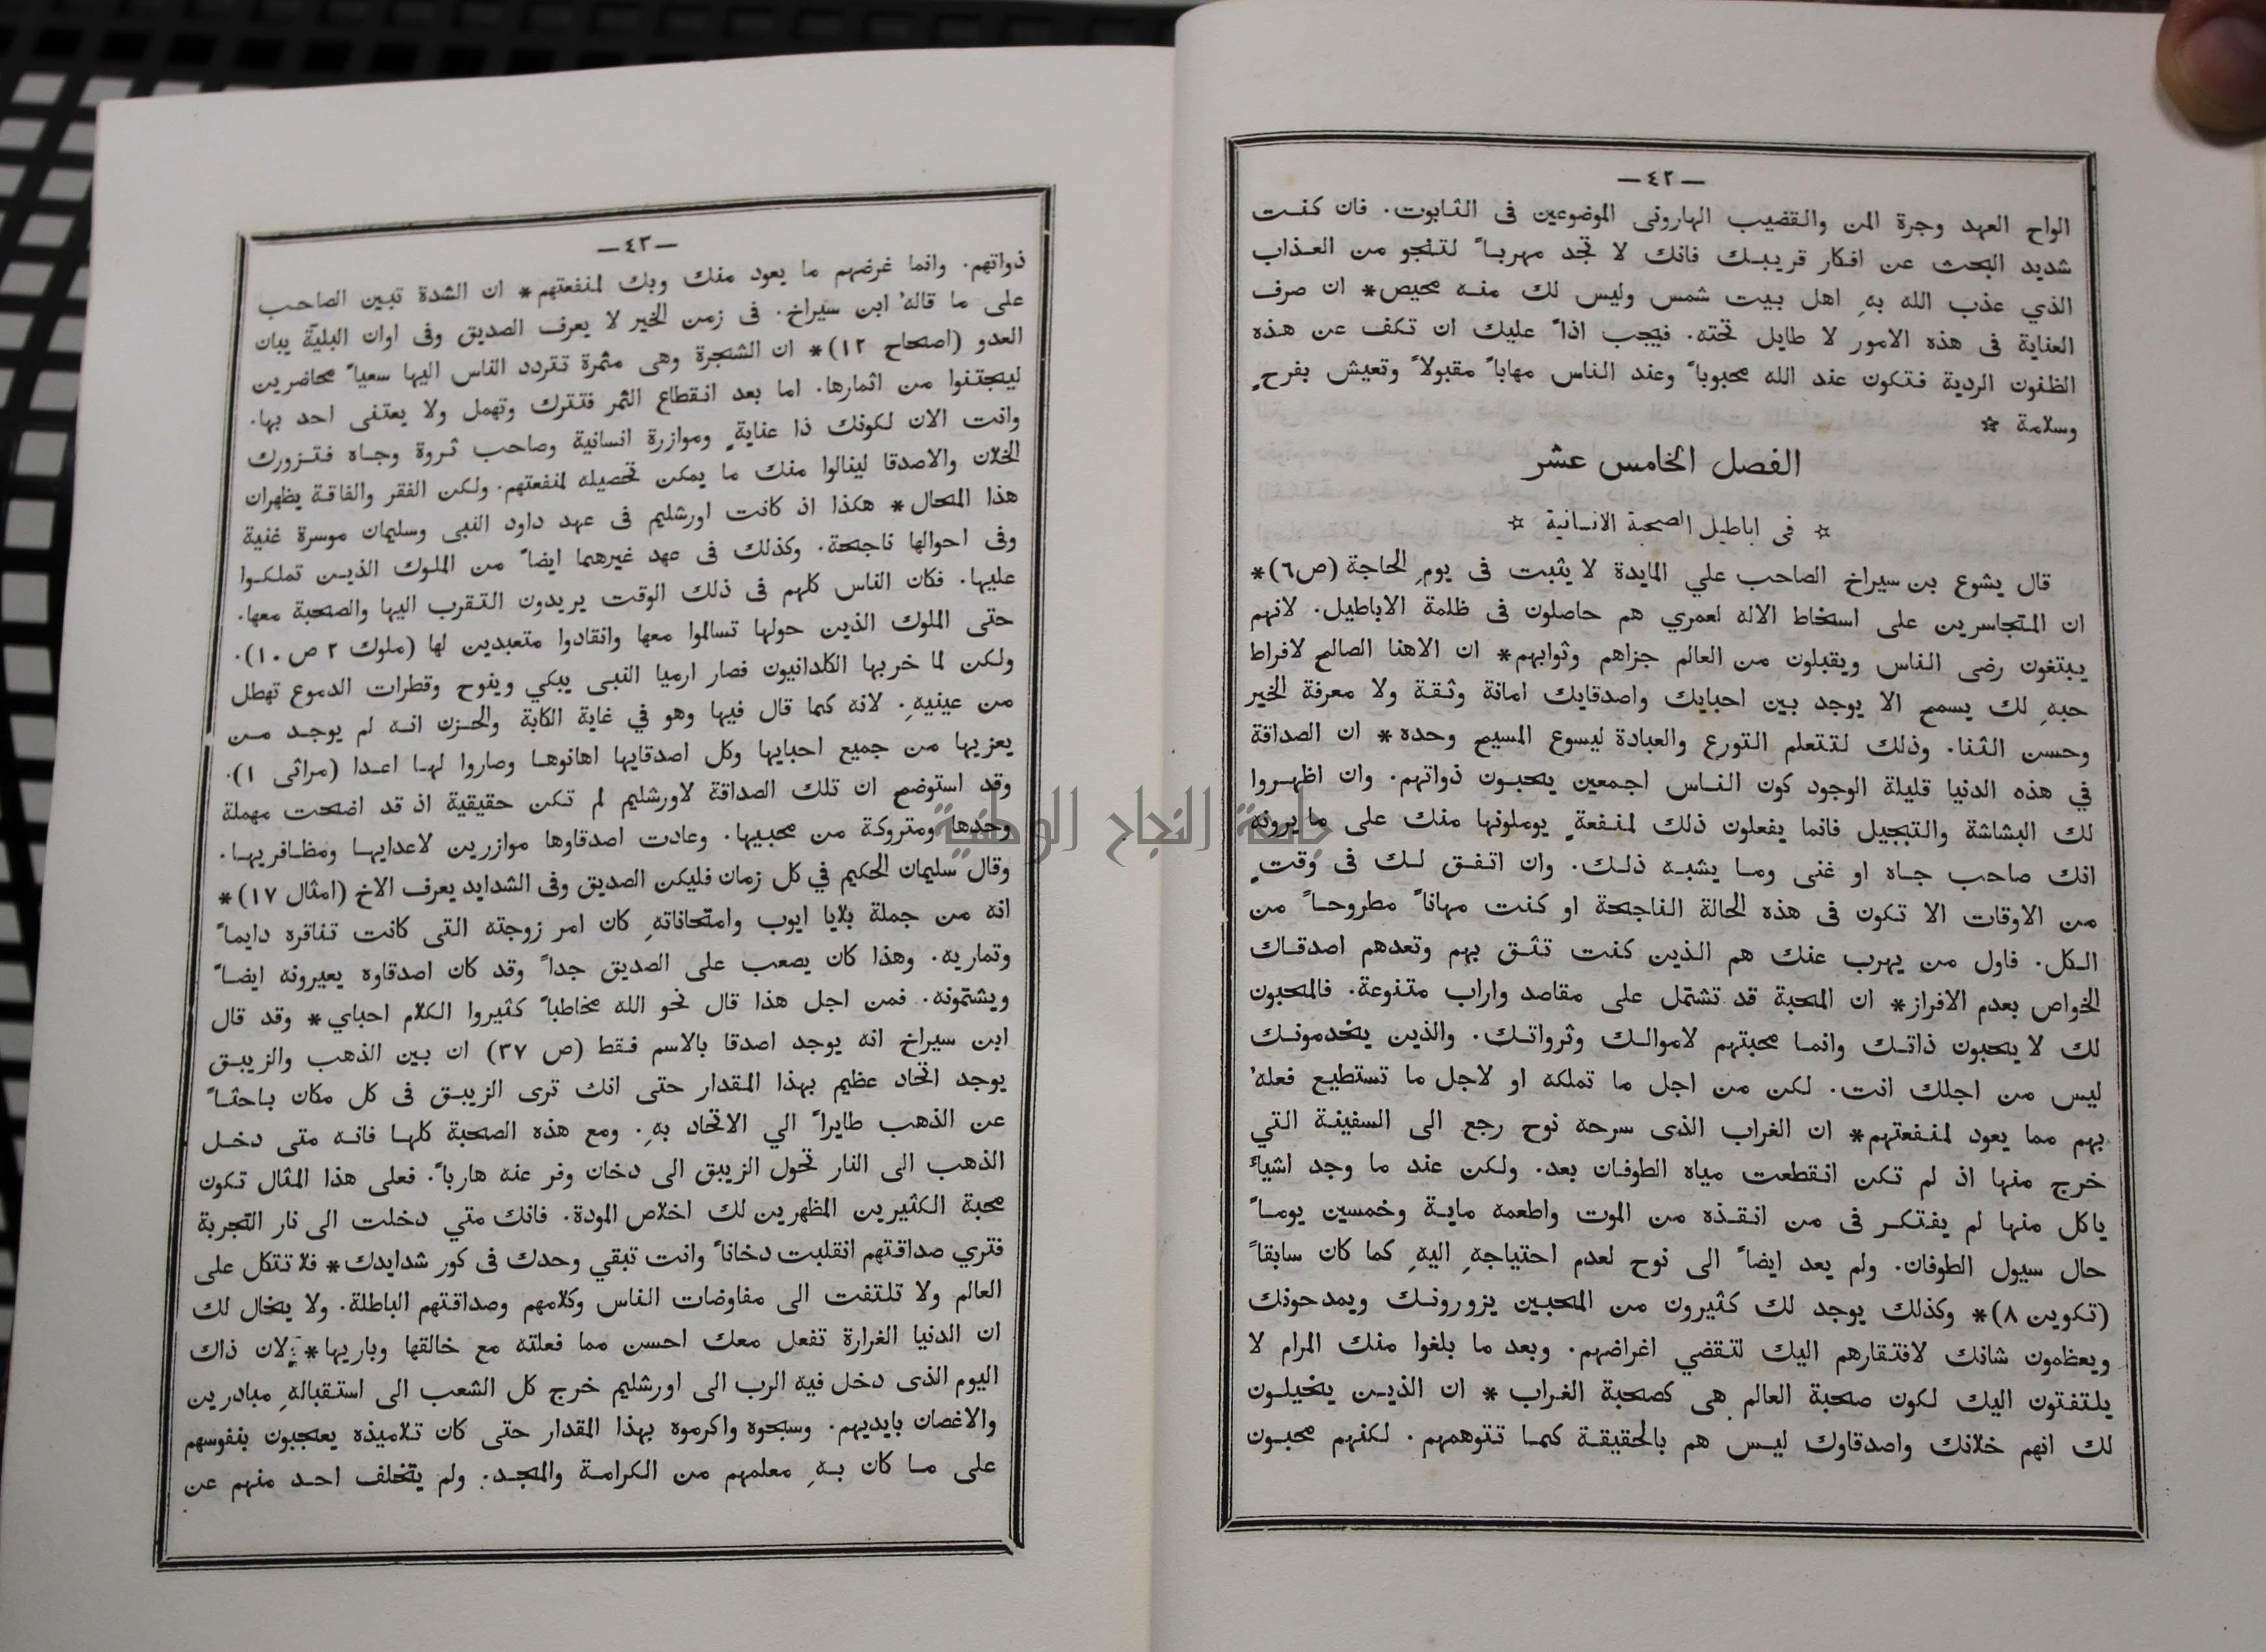 —٤٢—
الواح العهد وجرة المن والقضيب الهارونى الموضوعين فى التابوت. فان كنت
شديد البحث عن افكار قريبك فانك لا تجد مهرباً لتنجو من العذاب
الذي عذب الله بهِ اهل بيت شمس وليس لك منه محيص* ان صرف
العناية فى هذه الامور لا طايل تحته. فيجب اذاً عليك ان تكف عن هذه
الظنون الردية فتكون عند الله محبوباً وعند الناس مهاباً مقبولاً وتعيش بفرحٍ
وسلامة ☆
الفصل الخامس عشر
☆ فى اباطيل الصحبة الانسانية ☆
قال يشوع بن سيراخ الصاحب علي المايدة لا يثبت فى يومِ الحاجة (ص٦)*
ان المتجاسرين على اسخاط الاله لعمري هم حاصلون فى ظلمة الاباطيل. لانهم
يبتغون رضى الناس ويقبلون من العالم جزاهم وثوابهم* ان الاهنا الصالح لافراط
حبهِ لك يسمح الا يوجد بين احبايك واصدقايك امانة وثقة ولا معرفة الخير
وحسن الثنا. وذلك لتتعلم التورع والعبادة ليسوع المسيح وحده* ان الصداقة
في هذه الدنيا قليلة الوجود كون الناس اجمعين يحبون ذواتهم. وان اظهروا
لك البشاشة والتبجيل فانما يفعلون ذلك لمنفعةٍ يوملونها منك على ما يرونه
انك صاحب جاه او غنى وما يشبه ذلك. وان اتفق لك فى وقتٍ
من الاوقات الا تكون فى هذه الحالة الناجحة او كنت مهاناً مطروحاً من
الكل. فاول من يهرب عنك هم الذين كنت تثق بهم وتعدهم اصدقاك
الخواص بعدم الافراز* ان المحبة قد تشتمل على مقاصد واراب متنوعة. فالمحبون
لك لا يحبون ذاتك وانما محبتهم لاموالك وثرواتك. والذين يخدمونك
ليس من اجلك انت. لكن من اجل ما تملكه او لاجل ما تستطيع فعلهُ
بهم مما يعود لمنفعتهم* ان الغراب الذى سرحه نوح رجع الى السفينة التي
خرج منها اذ لم تكن انقطعت مياه الطوفان بعد. ولكن عند ما وجد اشياءً
ياكل منها لم يفتكر فى من انقذه من الموت واطعمه ماية وخمسين يوماً
حال سيول الطوفان. ولم يعد ايضاً الى نوح لعدم احتياجهِ اليهِ كما كان سابقاً
(تكوين ٨)* وكذلك يوجد لك كثيرون من المحبين يزورونك ويمدحونك
ويعظمون شانك لافتقارهم اليك لتقضي اغراضهم. وبعد ما بلغوا منك المرام لا
يلتفتون اليك لكون صحبة العالم هى كصحبة الغراب* ان الذين يخيلون
لك انهم خلانك واصدقاوك ليس هم بالحقيقة كما تتوهمهم. لكنهم محبون
—٤٣—
ذواتهم. وانما غرضهم ما يعود منك وبك لمنفعتهم* ان الشدة تبين الصاحب
على ما قالهُ ابن سيراخ. فى زمن الخير لا يعرف الصديق وفى اوان البلية يبان
العدو (اصحاح ١٢)* ان الشجرة وهى مثمرة تتردد الناس اليها سعياً محاضرين
ليجتنوا من اثمارها. اما بعد انقطاع الثمر فتترك وتهمل ولا يعتنى احد بها.
وانت الان لكونك ذا عنايةٍ وموازرة انسانية وصاحب ثروة وجاه فتزورك
الخلان والاصدقا لينالوا منك ما يمكن تحصيله لمنفعتهم. ولكن الفقر والفاقة يظهران
هذا المحال* هكذا اذ كانت اورشليم فى عهد داود النبى وسليمان موسرة غنية
وفى احوالها ناجحة. وكذلك فى عهد غيرهما ايضاً من الملوك الذين تملكوا
عليها. فكان الناس كلهم فى ذلك الوقت يريدون التقرب اليها والصحبة معها.
حتى الملوك الذين حولها تسالموا معها وانقادوا متعبدين لها (ملوك ٢ ص١٠).
ولكن لما خربها الكلدانيون فصار ارميا النبى يبكي وينوح وقطرات الدموع تهطل
من عينيهِ. لانه كما قال فيها وهو في غاية الكابة والحزن انه لم يوجد من
يعزيها من جميع احبايها وكل اصدقايها اهانوها وصاروا لها اعدا (مراثى ١).
وقد استوضح ان تلك الصداقة لاورشليم لم تكن حقيقية اذ قد اضحت مهملة
وحدها ومتروكة من محبيها. وعادت اصدقاوها موازرين لاعدايها ومظافريها.
وقال سليمان الحكيم في كل زمان فليكن الصديق وفى الشدايد يعرف الاخ (امثال ١٧)*
انه من جملة بلايا ايوب وامتحاناتهِ كان امر زوجته التى كانت تناقره دايماً
وتماريه. وهذا كان يصعب على الصديق جداً وقد كان اصدقاوه يعيرونه ايضاً
ويشتمونه. فمن اجل هذا قال نحو الله مخاطباً كثيروا الكلام احباي* وقد قال
ابن سيراخ انه يوجد اصدقا بالاسم فقط (ص ٣٧) ان بين الذهب والزيبق
يوجد اتحاد عظيم بهذا المقدار حتى انك ترى الزيبق فى كل مكان باحثاً
عن الذهب طايراً الي الاتحاد بهِ. ومع هذه الصحبة كلها فانه متى دخل
الذهب الى النار تحول الزيبق الى دخان وفر عنه هارباً. فعلى هذا المثال تكون
محبة الكثيرين المظهرين لك اخلاص المودة. فانك متي دخلت الى نار التجربة
فتري صداقتهم انقلبت دخاناً وانت تبقي وحدك فى كور شدايدك* فلا تتكل على
العالم ولا تلتفت الى مفاوضات الناس وكلامهم وصداقتهم الباطلة. ولا يخال لك
ان الدنيا الغرارة تفعل معك احسن مما فعلته مع خالقها وباريها* لان ذاك
اليوم الذى دخل فيه الرب الى اورشليم خرج كل الشعب الى استقبالهِ مبادرين
والاغصان بايديهم. وسبحوه واكرموه بهذا المقدار حتى كان تلاميذه يعجبون بنفوسهم
على ما كان بهِ معلمهم من الكرامة والمجد. ولم يتخلف احد منهم عن
جامعة النجاح الوطنية